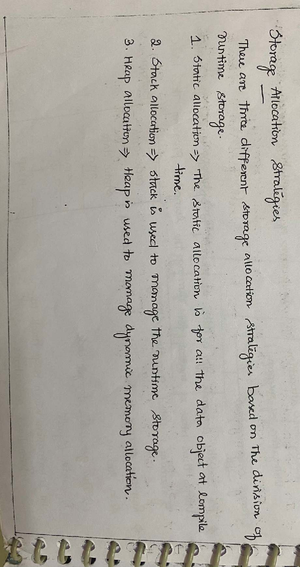 Storage Allocation Strategies
There are three different storage allocation strategies based on the division of
runtime storage.
1. Static allocation => The static allocation is for all the data object at compile
time.
2. Stack allocation => Stack is used to manage the runtime storage.
3. Heap allocation => Heap is used to manage dynamic memory allocation.